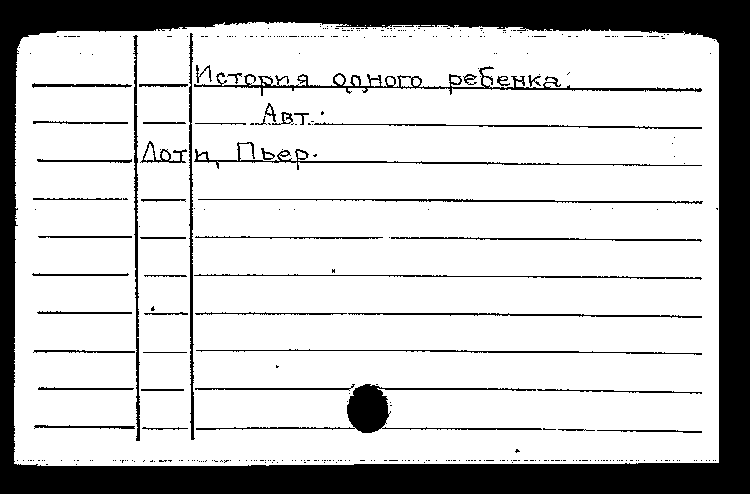 История одного ребенка.
Авт.:
Лоти, Пьер.